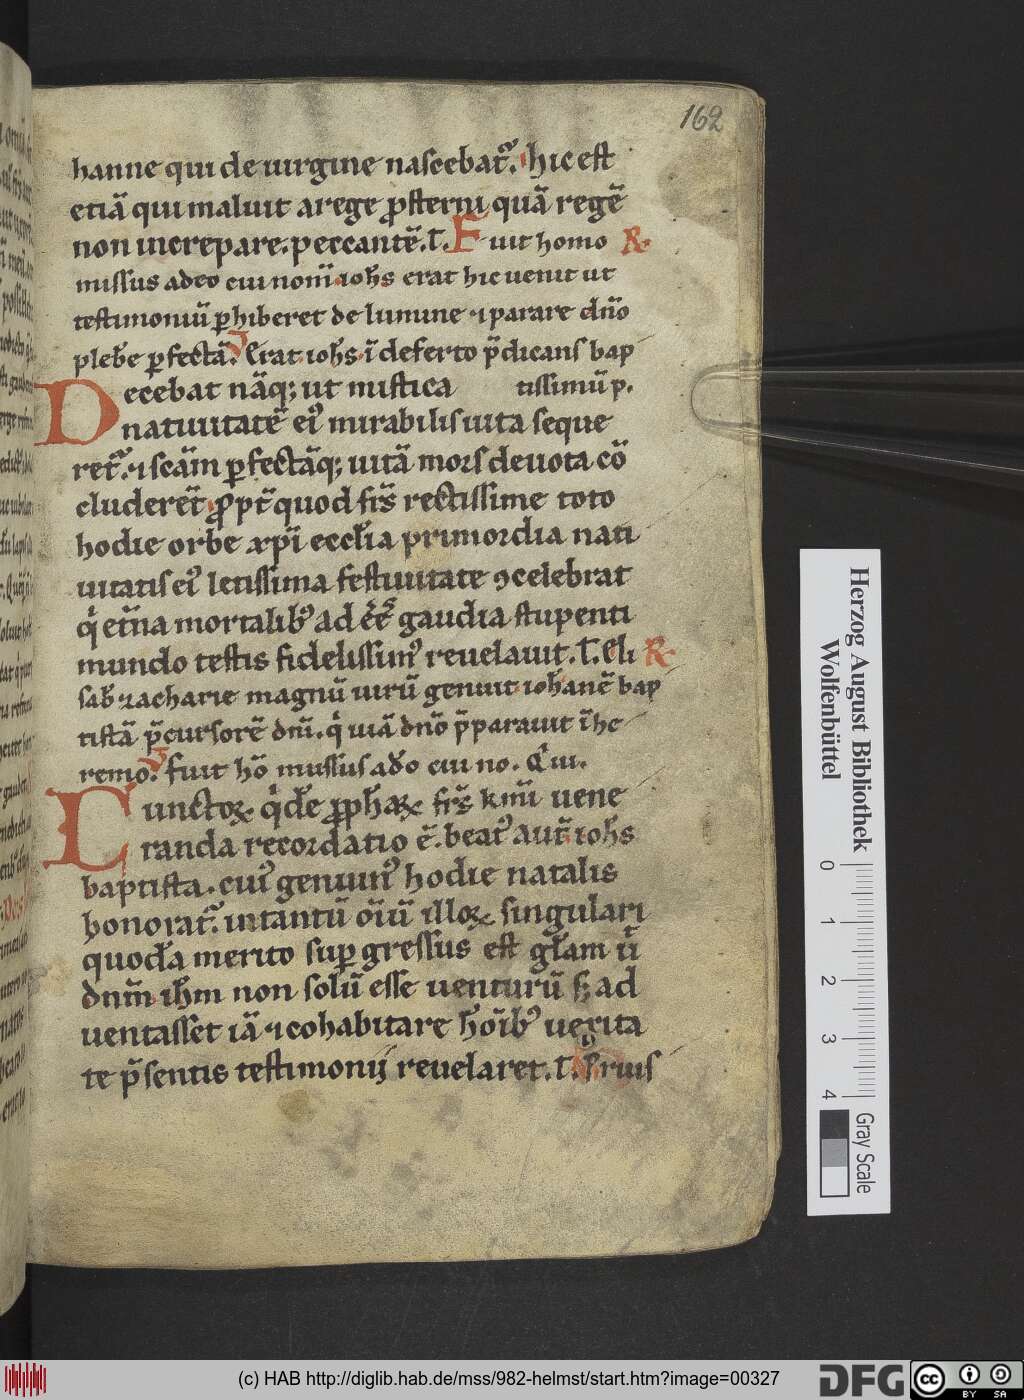 162
hanne qui de uirgine nascebat᷑. hic est
etiā qui maluit a rege ꝓsterni quā regē
non increpare. peccantē. T. Fuit homo R.
missus a deo cui nom̄ iohs erat hic uenit ut
testimoniū ꝑhiberet de lumine ⁊ parare dn̄o
plebē ꝑfectā. V Erat iohs ī deserto p̄dicans bap
Decebat nāq; ut mistica tissimū p.
natiuitatē eiꝰ mirabilis uita seque
ret᷑. ⁊ scām ꝑfectāq; uitā mors deuota cō
cluderet᷑ ꝓpt̄ quod frs̄ rectissime toto
hodie orbe xp̄i eccl̄ia primordia nati
uitatis eiꝰ letissima festiuitate ꝯcelebrat
qͥ et̄na mortalibꝰ ad gaudia stupenti
mundo testis fidelissimꝰ reuelauit. T. Eli R.
sab̄ zacharie magnū uirū genuit iohanē bap
tistā p̄cursorē dn̄i. qͥ uiā dn̄o p̄parauit ī he
remo. V Fuit hō missus a dō cui no. Qͥ ui.
Cunctoꝝ qͥdē ꝓphaꝝ frs̄ km̄i uene
randa recordatio ē. beatꝰ aut̄ iohs
baptista. cuiꝰ genuinꝰ hodie natalis
honorat᷑. intantū oīū illoꝝ singulari
quodā merito suꝑgressus est gl̄am ut
dn̄m ihm non solū esse uenturū sꝫ ad
uentasset iā ⁊ cohabitare hoībꝰ uerita
te p̄sentis testimonij reuelaret. T. Prius
Herzog August Bibliothek
Wolfenbüttel
0 1 2 3 4
Gray Scale
(c) HAB http://diglib.hab.de/mss/982-helmst/start.htm?image=00327
DFG
cc
BY SA